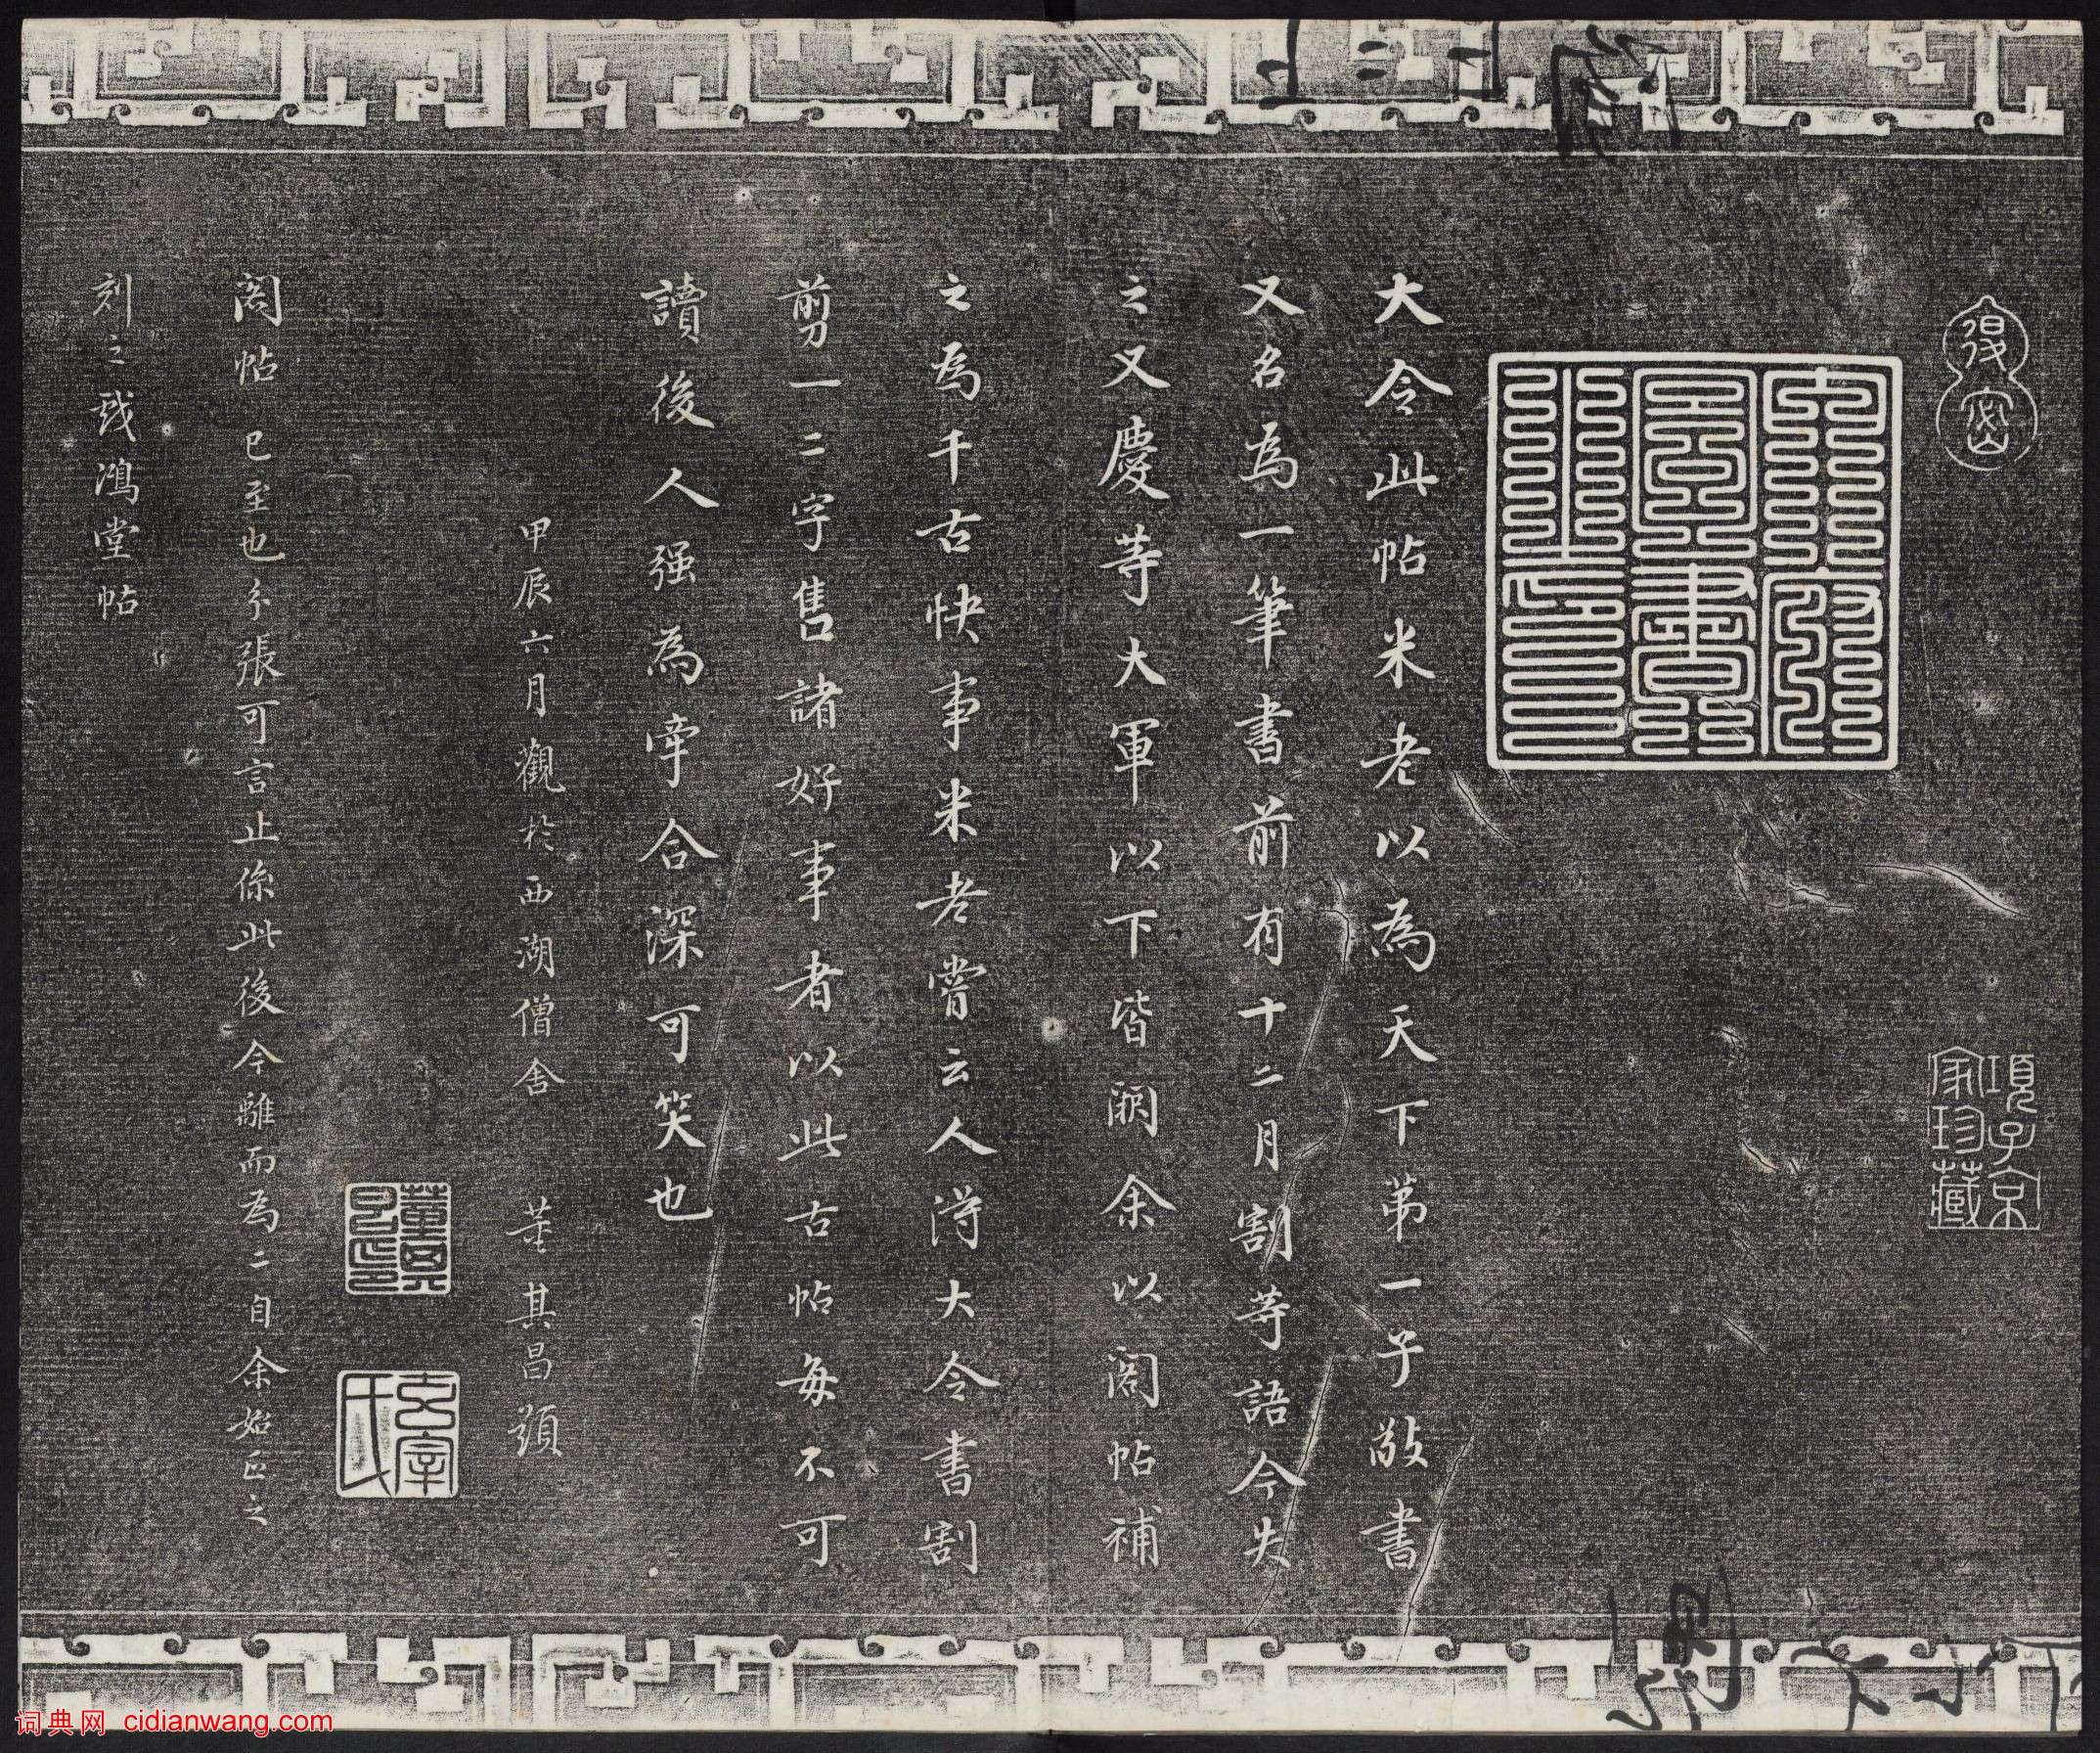 大令此帖米老以為天下第一子敬書
又名為一筆書前有十二月割等語今失
之又慶等大軍以下皆闕余以閣帖補
之為千古快事米老嘗云人得大令書割
剪一二字售諸好事者以此古帖每不可
讀後人强為牽合深可笑也
甲辰六月觀於西湖僧舍 董其昌題
閣帖已至也分張可言止係此後今離而為二自余始正之
刻之戏鴻堂帖
項子京
家珍藏
董其
昌印
玄宰
氏
词典网 cidianwang.com